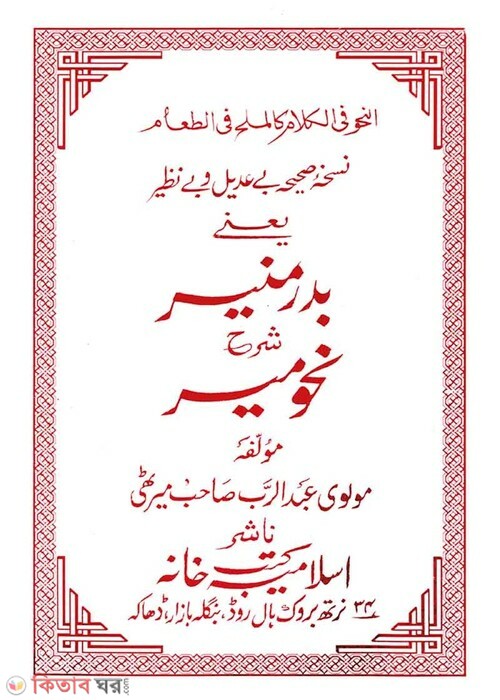 النحو فی الکلام کالملح فی الطعام
نسخۂ صحیحہ بے عدیل و بے نظیر
یعنے
بدر منیر
شرح
نحو میر
مؤلفہ
مولوی عبد الرب صاحب میرٹھی
ناشر
اسلامیہ کتب خانہ
۳۴ نرتھ بروک ہال روڈ، بنگلہ بازار، ڈھاکہ
কিতাব ঘর.com